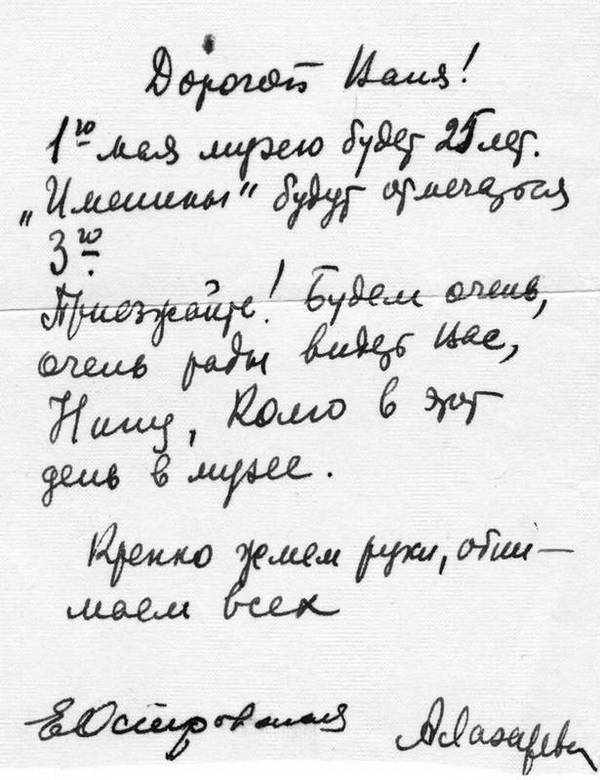 Дорогой Ваня!
1го мая музею будет 25 лет.
„Именины" будут отмечаться
3го.
Приезжайте! Будем очень,
очень рады видеть Вас,
Нину, Колю в этот
день в музее.
Крепко жмем руки, обни-
маем всех
ЕОстровская АЛазарева